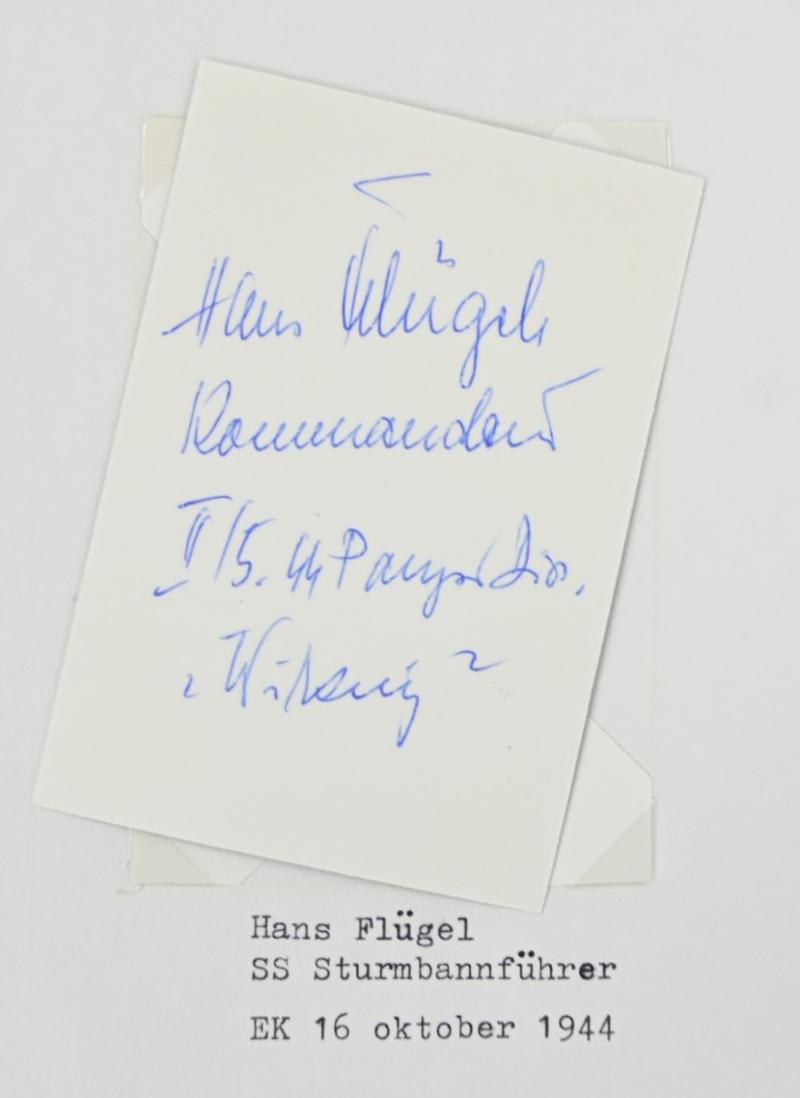 Hans Flügel
Kommandeur
II/5. SS Panzer Div.
„Wiking"
Hans Flügel
SS Sturmbannführer
EK 16 oktober 1944